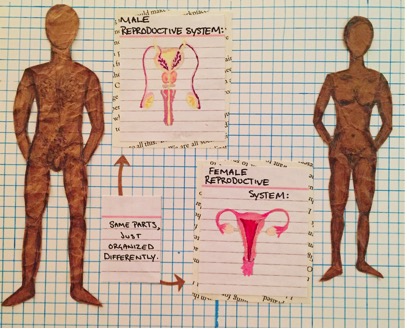 MALE
REPRODUCTIVE SYSTEM:
FEMALE
REPRODUCTIVE
SYSTEM:
SAME PARTS,
JUST
ORGANIZED
DIFFERENTLY.